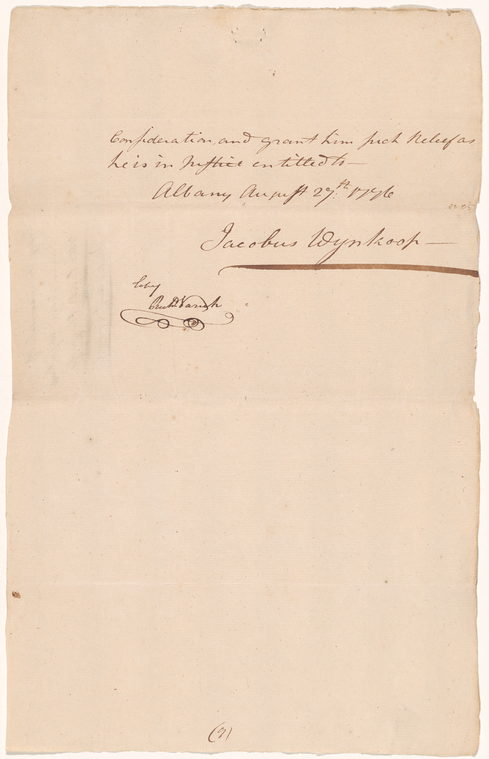 Consideration and grant him such Relief as
he is in Justice entitled to —
Albany August 27.th 1776
Jacobus Wynkoop —
Copy
Richd Varick
(7)